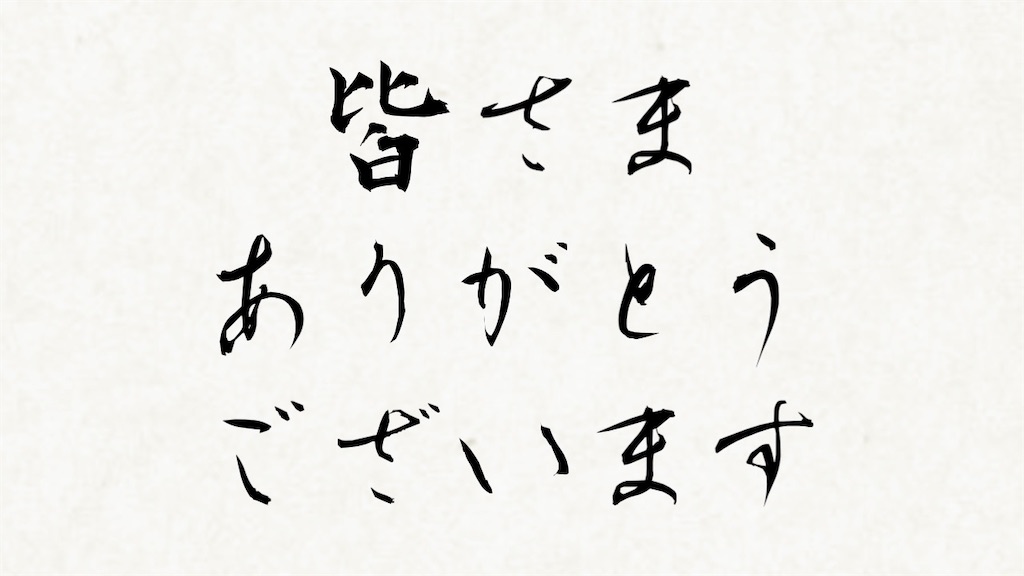 皆さま
ありがとう
ございます